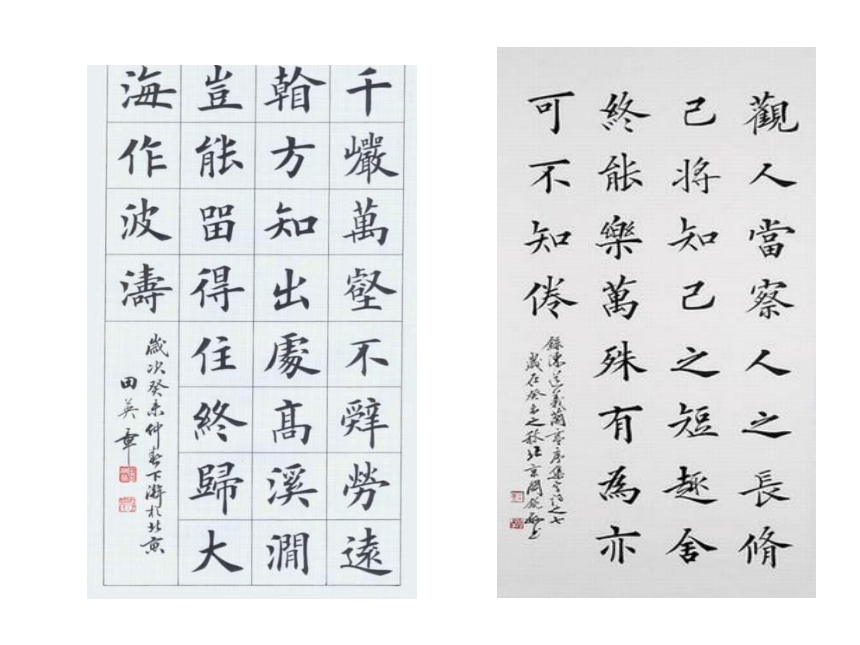 千巖萬壑不辭勞遠
看方知出處高溪澗
豈能留得住終歸大
海作波濤
歲次癸未仲春下澣於北京
田英章
觀人當察人之長脩
己將知己之短趣舍
終能樂萬殊有為亦
可不知倦
錄陳道義蘭亭序集字詩之七
歲在癸未之秋北京